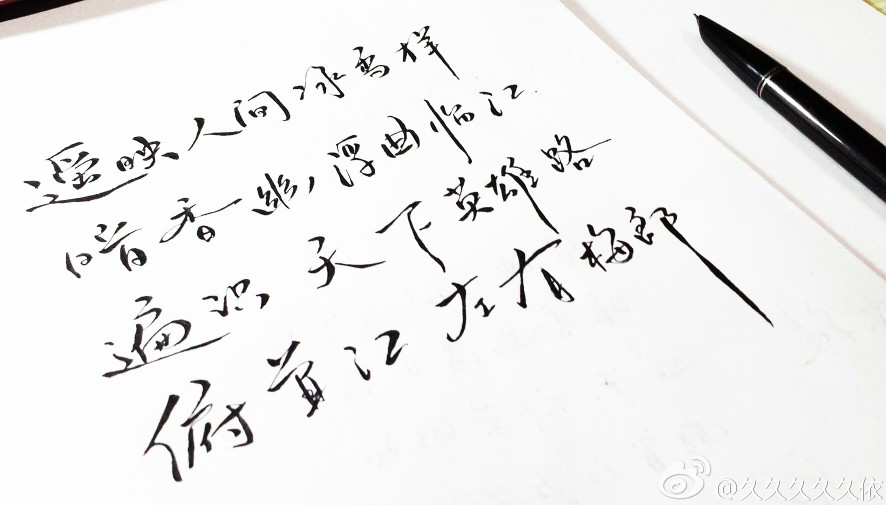 遥映人间冰雪样
暗香幽浮曲临江
遍识天下英雄路
俯首江左有梅郎
@久久久久久依